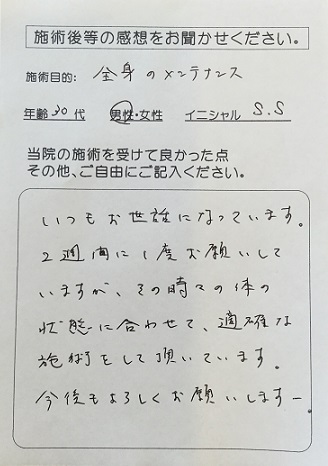 施術後等の感想をお聞かせください。
施術目的: 全身のメンテナンス
年齢 30 代 男性・女性 イニシャル S.S
当院の施術を受けて良かった点
その他、ご自由にご記入ください。
いつもお世話になっています。
2週間に1度お願いして
いますが、その時々の体の
状態に合わせて、適確な
施術をして頂いています。
今後もよろしくお願いしますー。